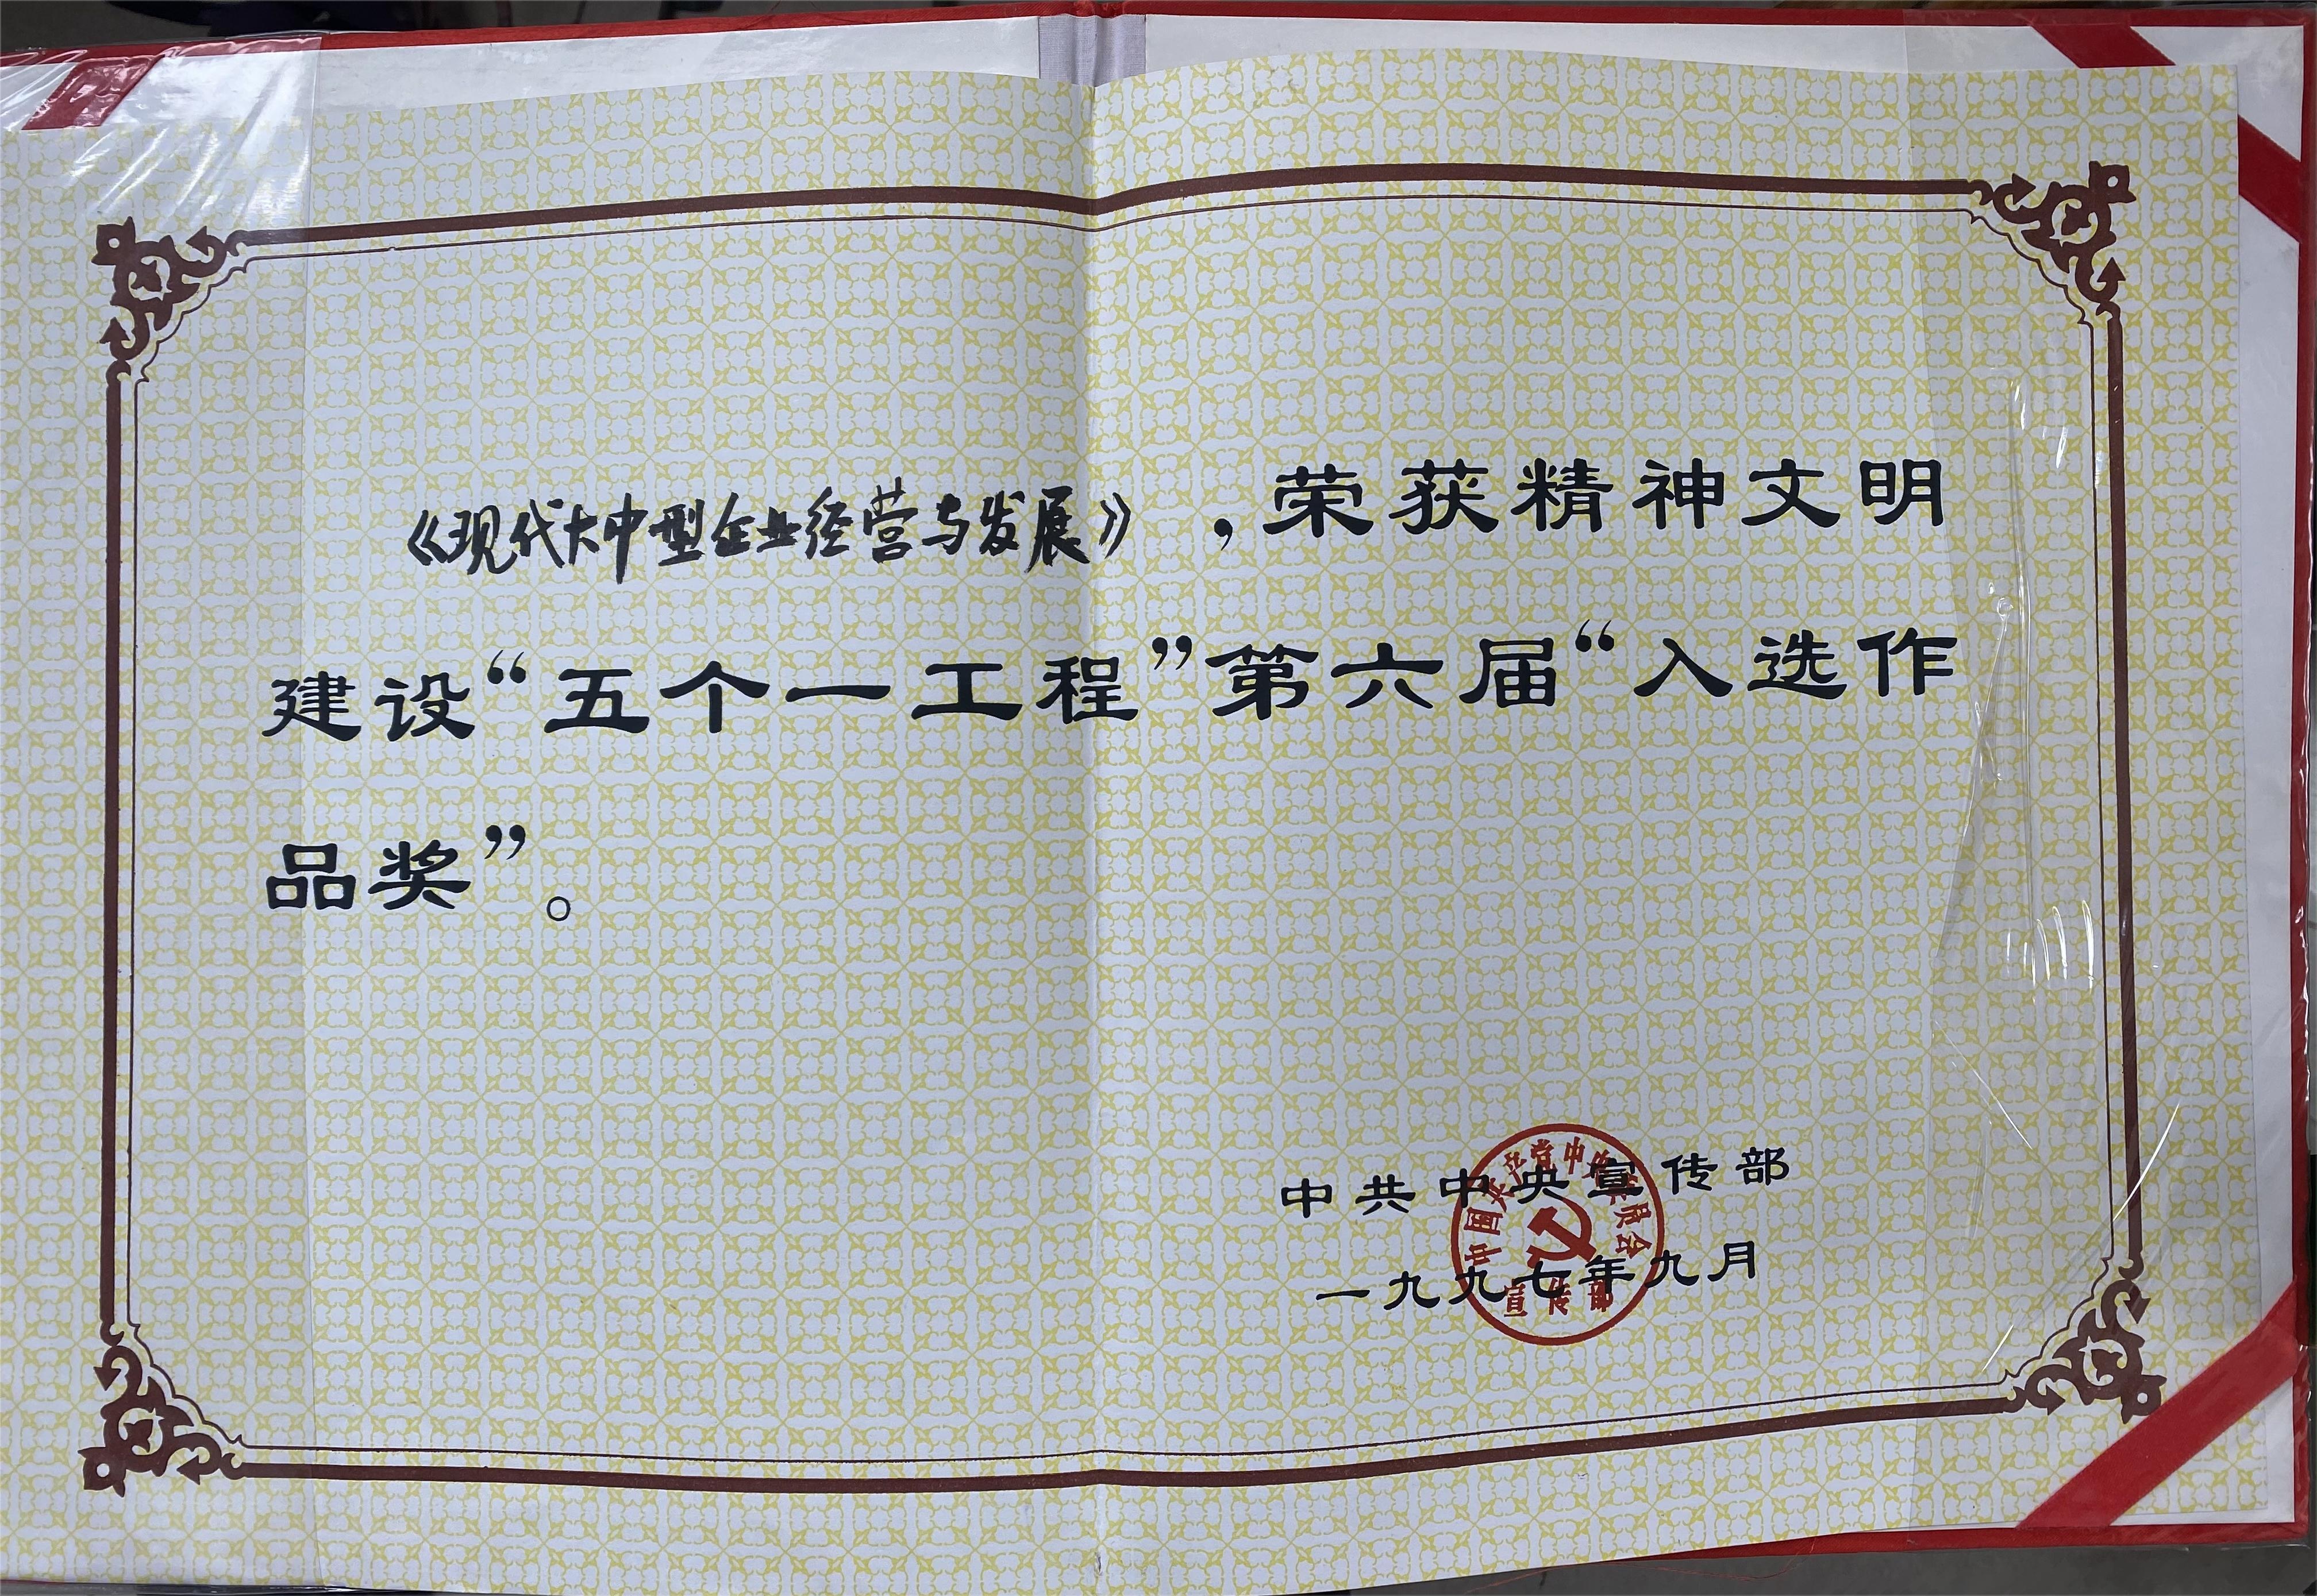 《现代大中型企业经营与发展》，荣获精神文明
建设“五个一工程”第六届“入选作
品奖”。
中共中央宣传部
一九九七年九月
中国共产党中央委员会
宣传部